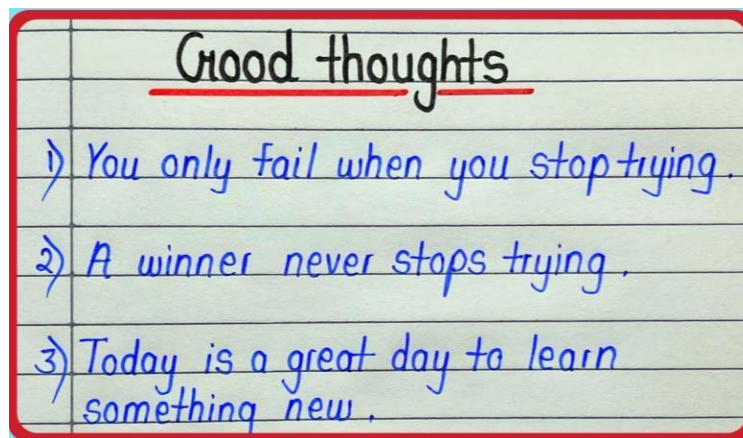 Good thoughts
1) You only fail when you stop trying.
2) A winner never stops trying.
3) Today is a great day to learn
something new.